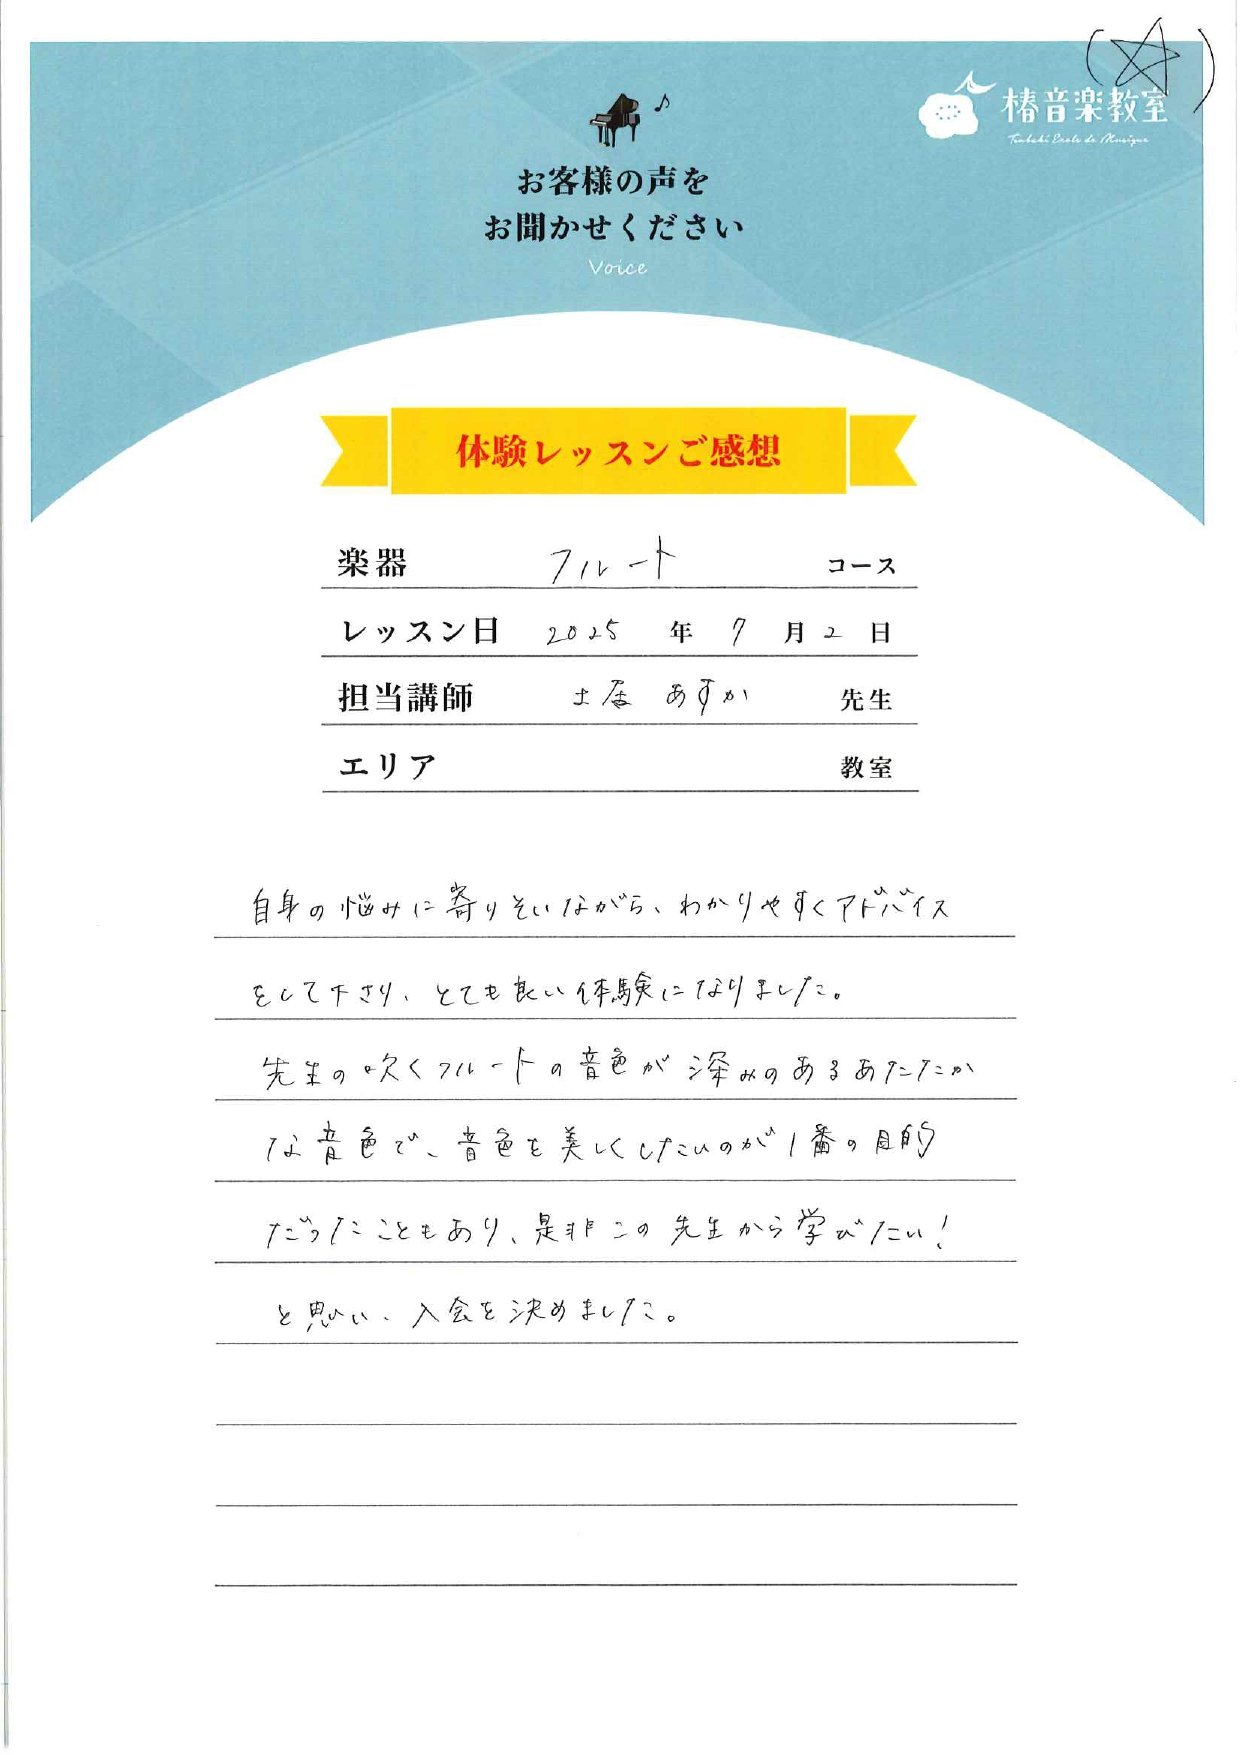 椿音楽教室
Tsubaki Ecole de Musique
お客様の声を
お聞かせください
Voice
体験レッスンご感想
楽器 フルート コース
レッスン日 2025 年 7 月 2 日
担当講師 土居 あすか 先生
エリア 教室
自身の悩みに寄りそいながら、わかりやすくアドバイス
をして下さり、とても良い体験になりました。
先生の吹くフルートの音色が深みのあるあたたか
な音色で、音色を美しくしたいのが1番の目的
だったこともあり、是非この先生から学びたい!
と思い、入会を決めました。